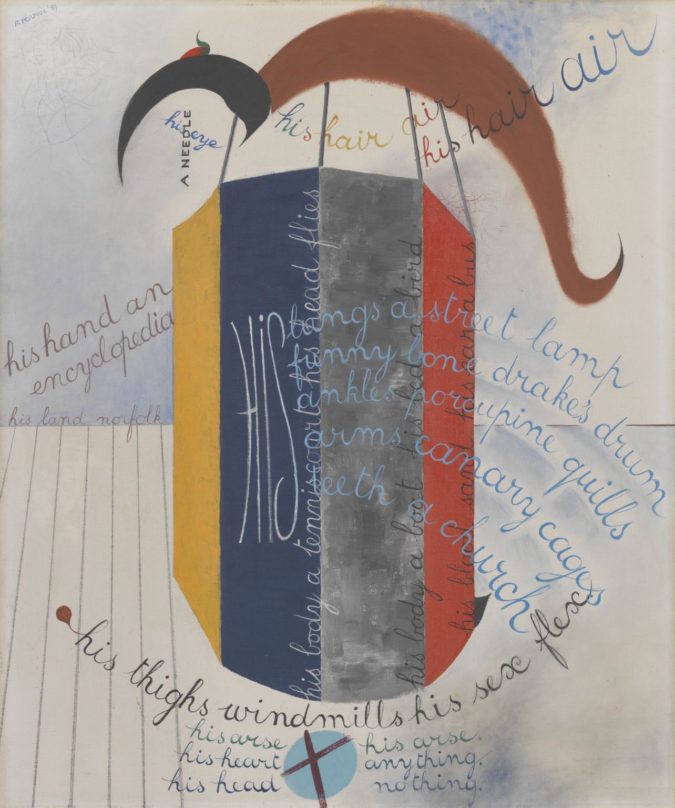 R. Penrose '39
his eye
A NEEDLE
his hair air
his hair air
his hand an
encyclopedia
his land norfolk
HIS
a street lamp
funny bone drake's drum
ankles porcupine quills
arms canary cages
teeth a church
his body a tennis court his head flies
his body a boot his a bird
his sand his ear a bus
his thighs windmills his sex flex
his arse his arse.
his heart anything.
his head nothing.